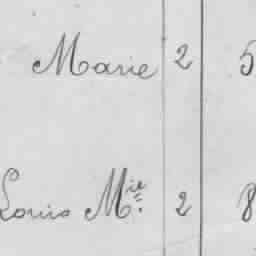 Marie 2 5
Louis Mie. 2 8